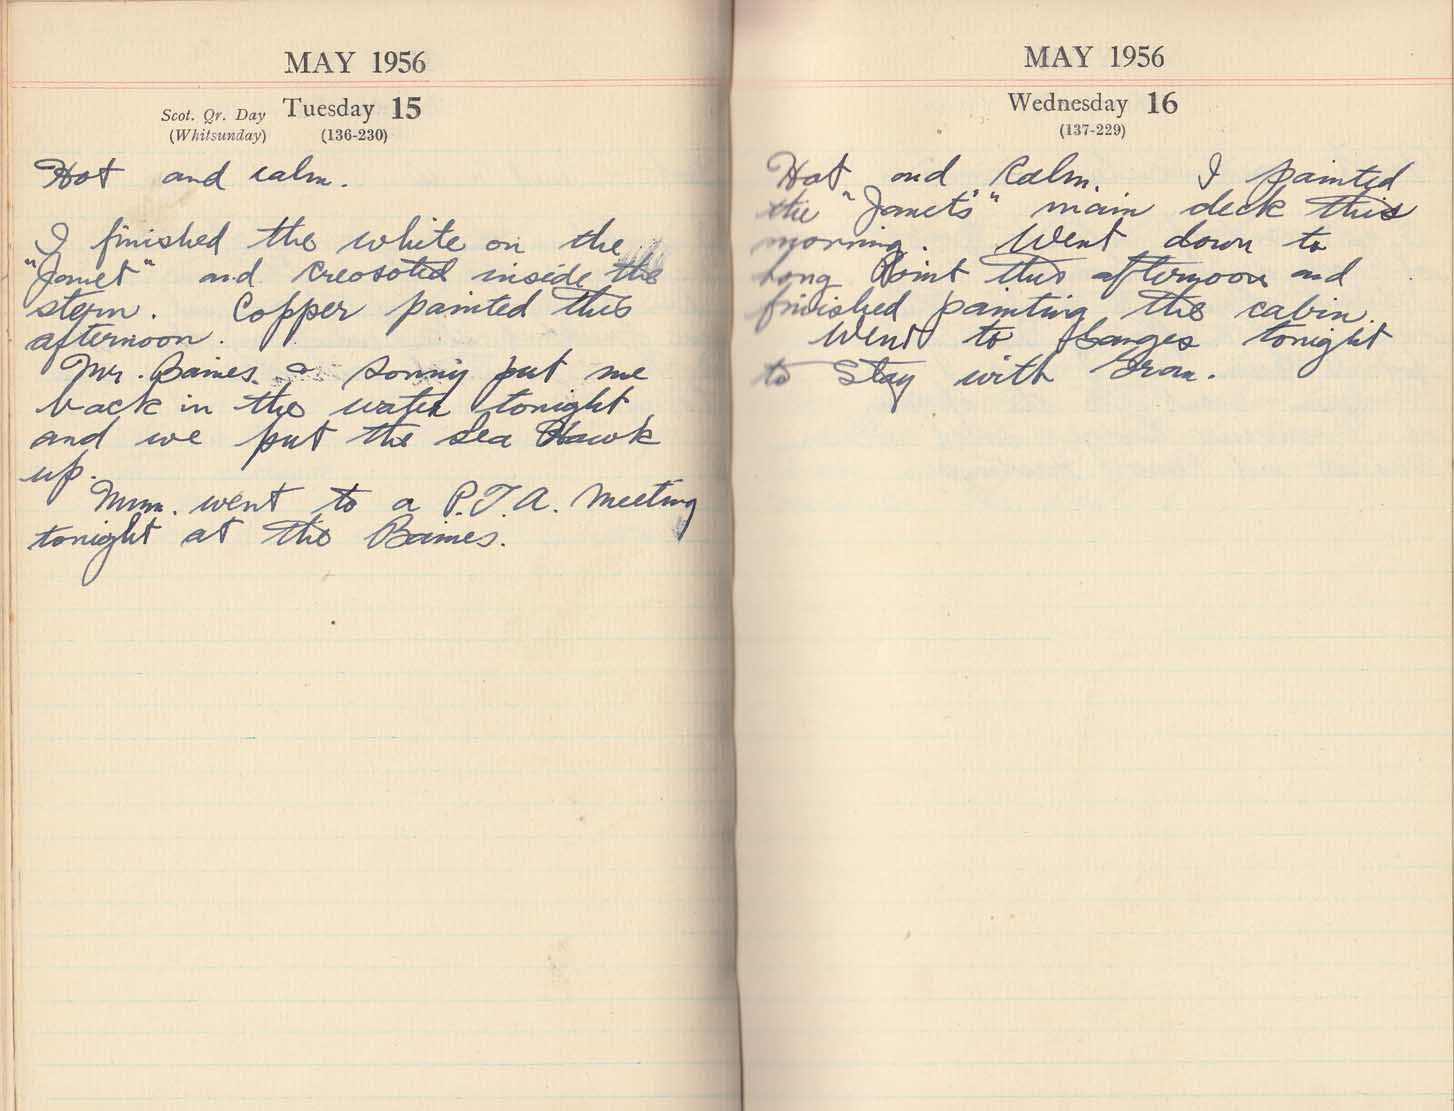 MAY 1956
Scot. Qr. Day Tuesday 15
(Whitsunday) (136-230)
Hot and calm.
I finished the white on the
"Janet" and creosoted inside the
stern. Copper painted this
afternoon.
Mr. Baines & Sonny put me
back in the water tonight
and we put the Sea Hawk
up.
Mum. went to a P.T.A. Meeting
tonight at the Baines.
MAY 1956
Wednesday 16
(137-229)
Hot and Calm. I painted
the "Janets" main deck this
morning. Went down to
Long Point this afternoon and
finished painting the cabin.
Went to tonight
to Stay with Gran.